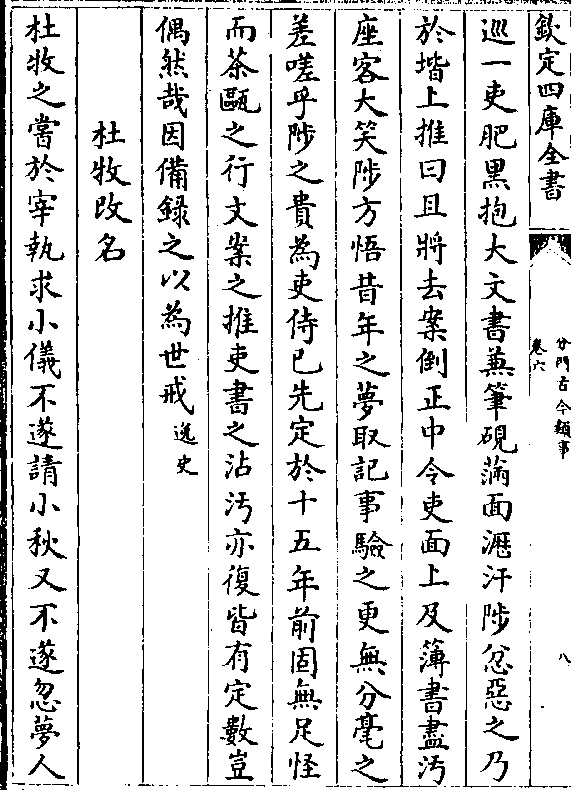 欽定四庫全書
分門古今類事
卷六
八
巡一吏肥黑抱大文書兼筆硯滿面瀝汗陟忿惡之乃
於堦上推曰且將去案倒正中令吏面上及簿書盡汚
座客大笑陟方悟昔年之夢取記事驗之更無分毫之
差嗟乎陟之貴為吏侍已先定於十五年前固無足怪
而茶甌之行文案之推吏書之沾汚亦復皆有定數豈
偶然哉因備録之以為世戒逸史
杜牧改名
杜牧之嘗於宰執求小儀不遂請小秋又不遂忽夢人